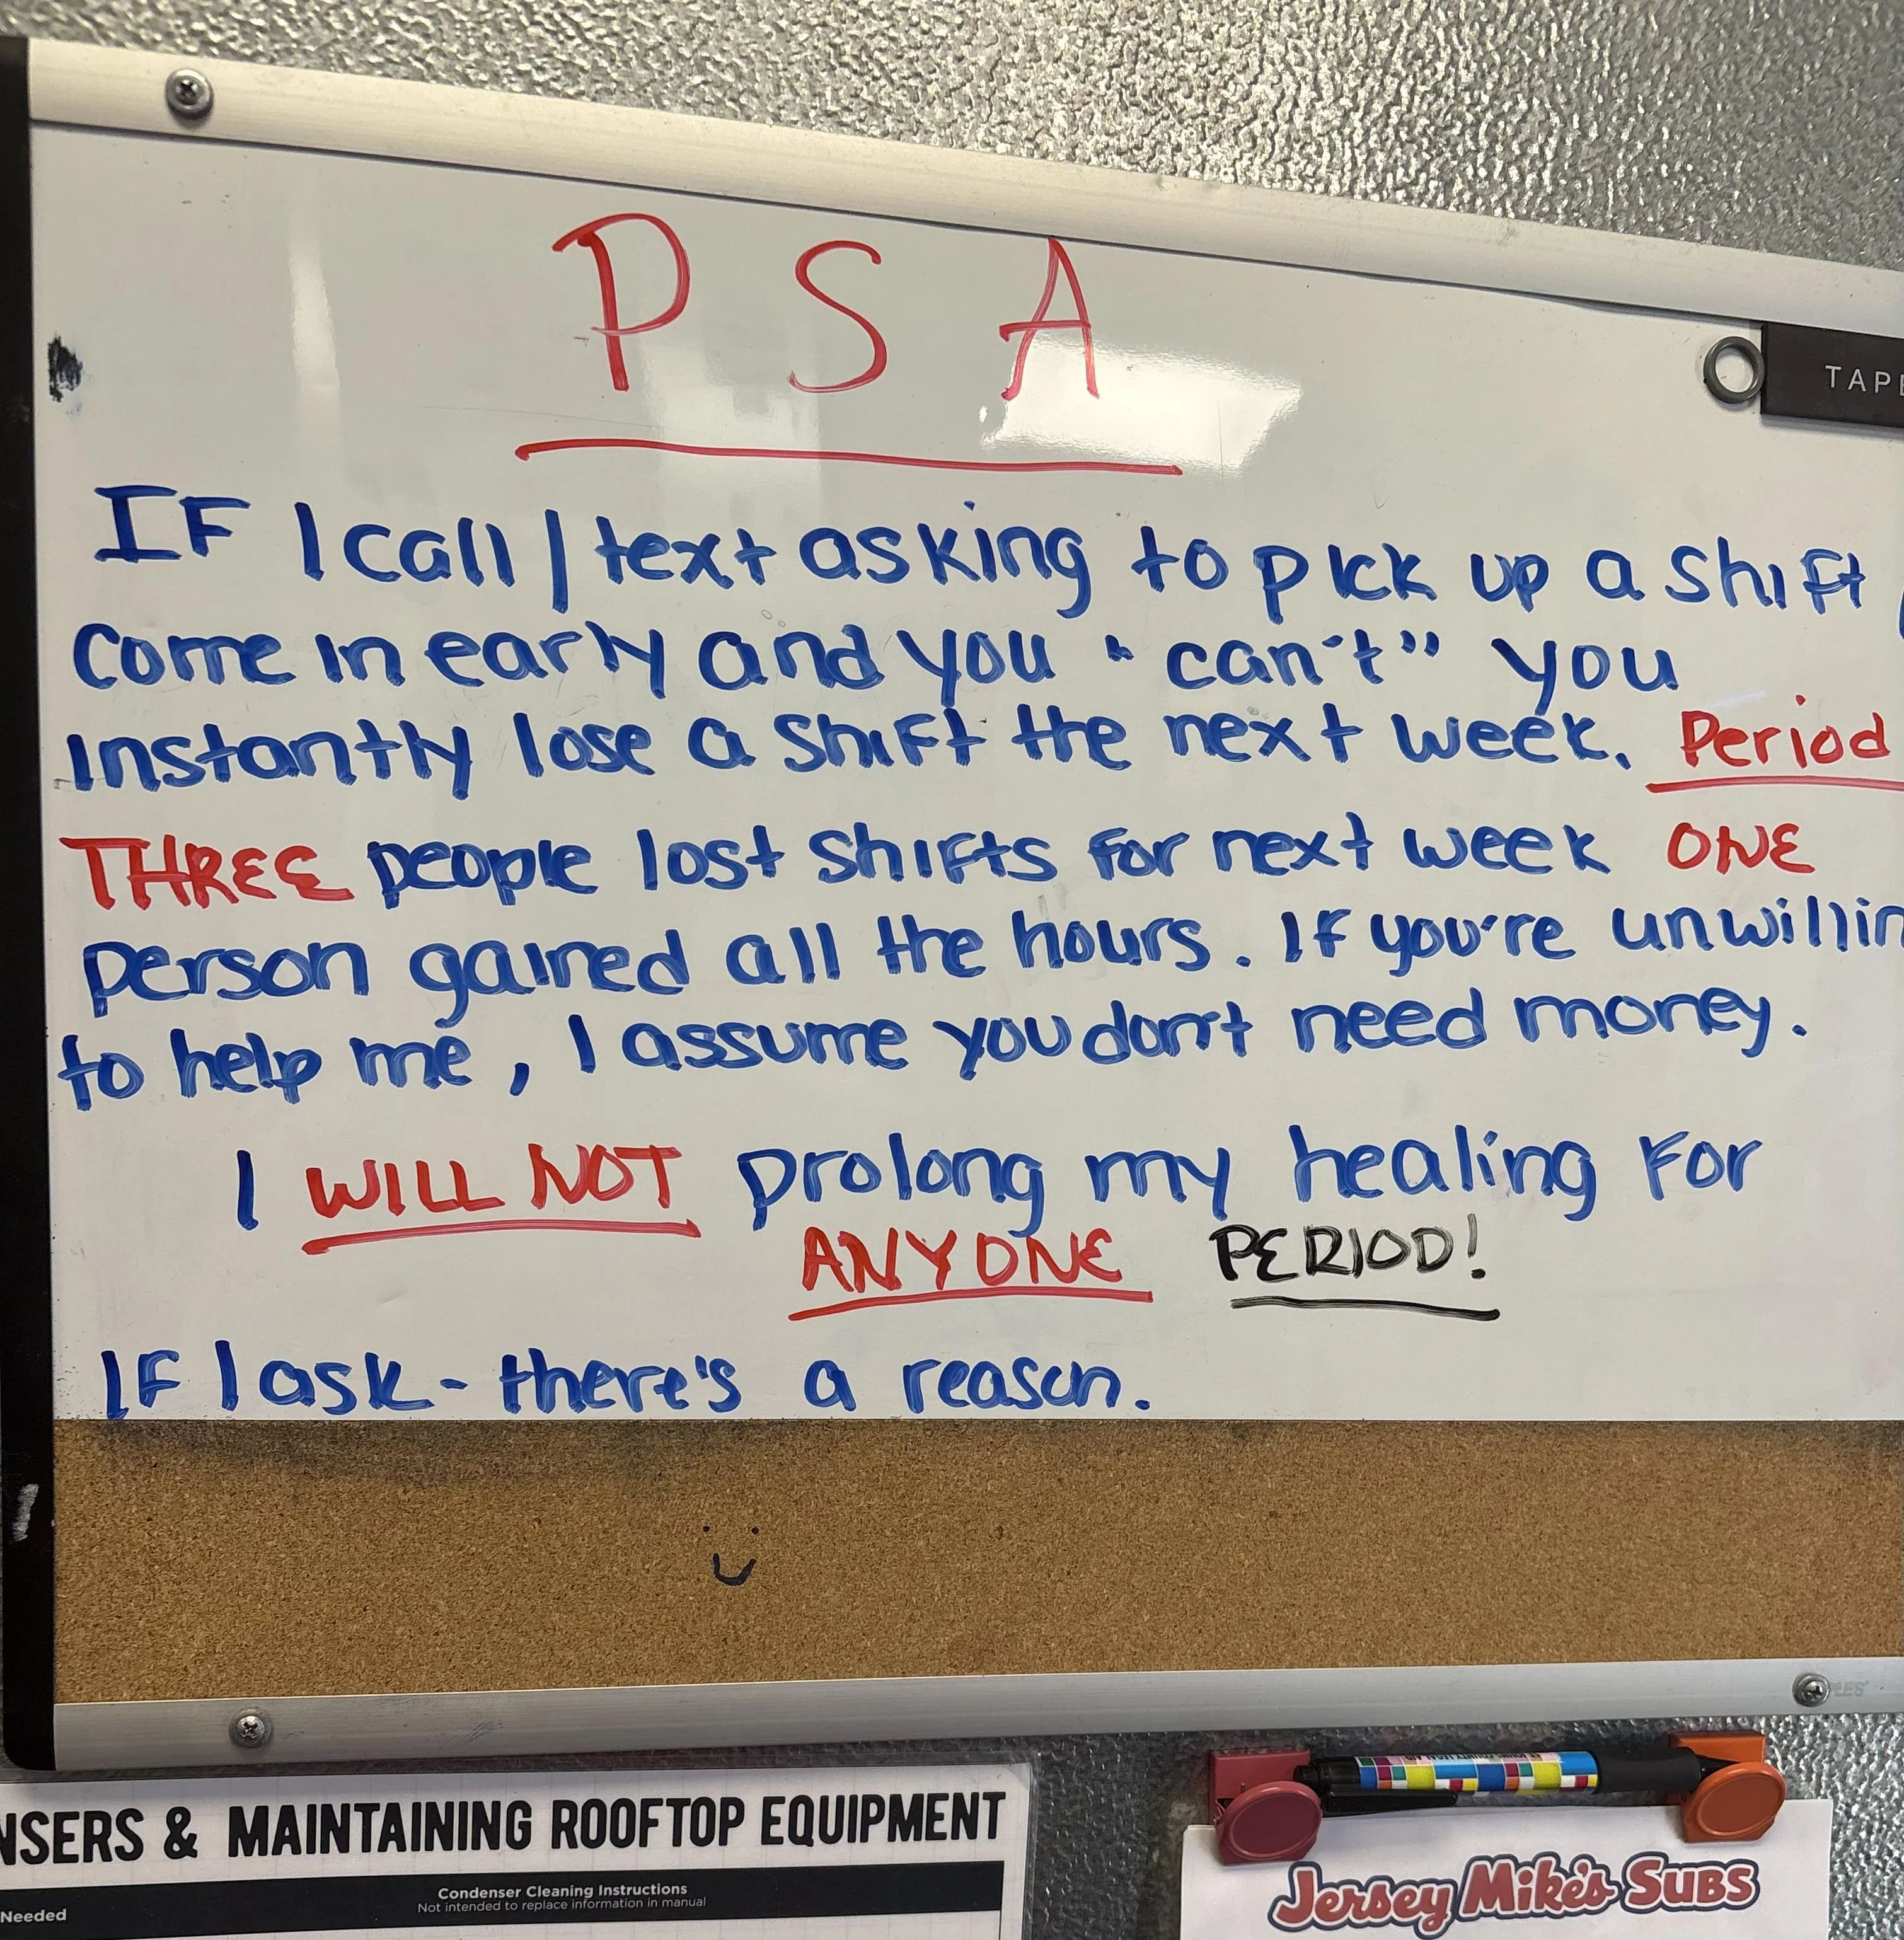 P S A
TAPE
IF I call / text asking to pick up a shift
come in early and you "can't" you
instantly lose a shift the next week. Period
THREE people lost shifts for next week ONE
person gained all the hours. If you're unwillin
to help me, I assume you don't need money.
I WILL NOT prolong my healing for
ANYONE PERIOD!
IF I ask - there's a reason.
NSERS & MAINTAINING ROOFTOP EQUIPMENT
Condenser Cleaning Instructions
Not intended to replace information in manual
Needed
Jersey Mike's SUBS